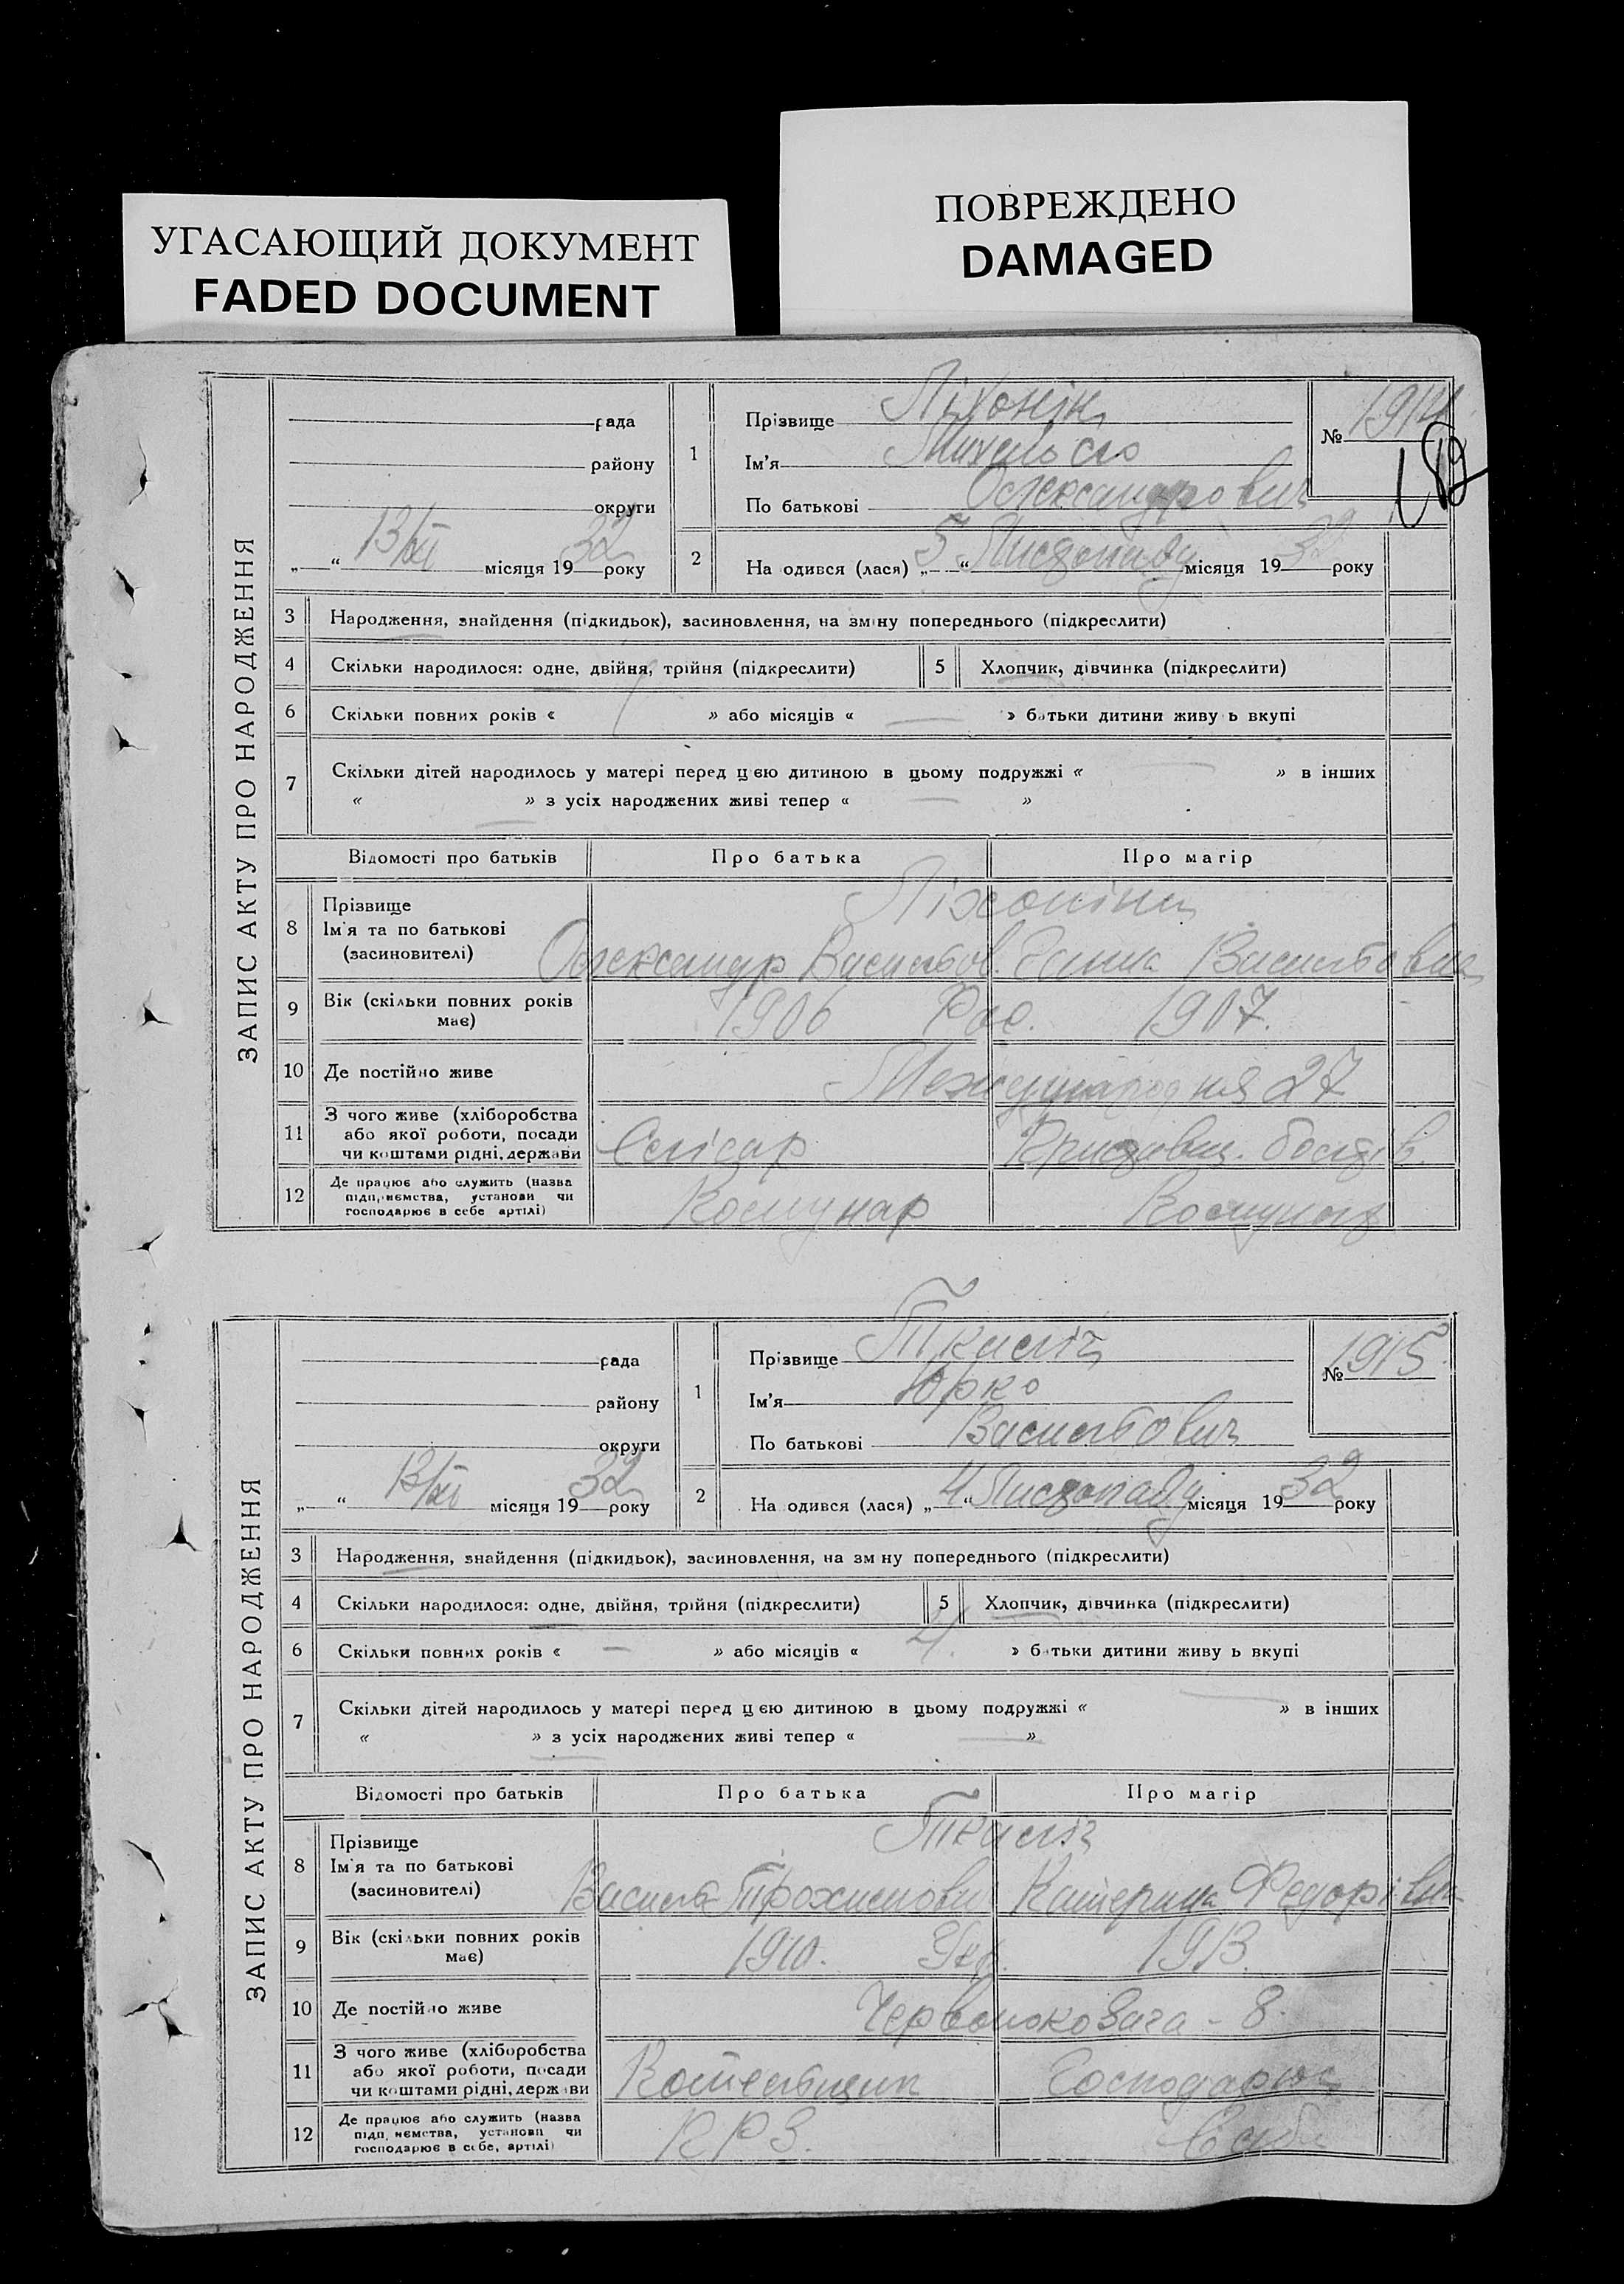 УГАСАЮЩИЙ ДОКУМЕНТ
FADED DOCUMENT
ПОВРЕЖДЕНО
DAMAGED
ЗАПИС АКТУ ПРО НАРОДЖЕННЯ
рада
району
округи
„ “ 13/XI місяця 1932 року
1 Прізвище Ліхонін
Ім'я
По батькові Олександрович
№ 1914
182
2 На одився (лася) „5“ Листопаду місяця 1932 року
3 Народження, знайдення (підкидьок), засиновлення, на зміну попереднього (підкреслити)
4 Скільки народилося: одне, двійня, трійня (підкреслити)
5 Хлопчик, дівчинка (підкреслити)
6 Скільки повних років « 1 » або місяців « — » батьки дитини живу ь вкупі
7 Скільки дітей народилось у матері перед цією дитиною в цьому подружжі « — » в інших
« — » з усіх народжених живі тепер « — »
Відомості про батьків Про батька Про матір
8 Прізвище
Ім'я та по батькові
(засиновителі)
Ліхоніни
Олександр Васильов. Ганна Васильовна
9 Вік (скільки повних років має) 1906 Рос. 1907.
10 Де постійно живе Международня 27
11 З чого живе (хліборобства
або якої роботи, посади
чи коштами рідні, держави
Слісар
12 Де працює або служить (назва
підприємства, установи чи
господарює в себе артілі)
Комунар Комунар
ЗАПИС АКТУ ПРО НАРОДЖЕННЯ
рада
району
округи
„ “ 13/XI місяця 1932 року
1 Прізвище Ткаліч
Ім'я Юрко
По батькові Васильович
№ 1915
2 На одився (лася) „4“ Листопаду місяця 1932 року
3 Народження, знайдення (підкидьок), засиновлення, на зм ну попереднього (підкреслити)
4 Скільки народилося: одне, двійня, трійня (підкреслити)
5 Хлопчик, дівчинка (підкреслити)
6 Скільки повних років « — » або місяців « 4. » батьки дитини живу ь вкупі
7 Скільки дітей народилось у матері перед цією дитиною в цьому подружжі « — » в інших
« — » з усіх народжених живі тепер « — »
Відомості про батьків Про батька Про матір
8 Прізвище
Ім'я та по батькові
(засиновителі)
Ткаліч
Василь Трохимович Катерина Федорівна
9 Вік (скільки повних років має) 1910. Укр. 1913.
10 Де постійно живе Червонокозача - 8.
11 З чого живе (хліборобства
або якої роботи, посади
чи коштами рідні, держави
Котельщик Господарює
12 Де працює або служить (назва
підприємства, установи чи
господарює в себе, артілі)
К Р З.